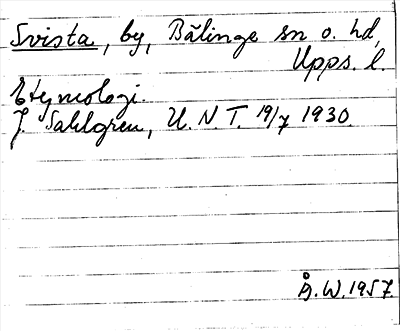 Svista, by, Bälinge sn o. hd,
Upps. l.
Etymologi.
J. Sahlgren, U.N.T. 19/7 1930.
Å.W. 1957.